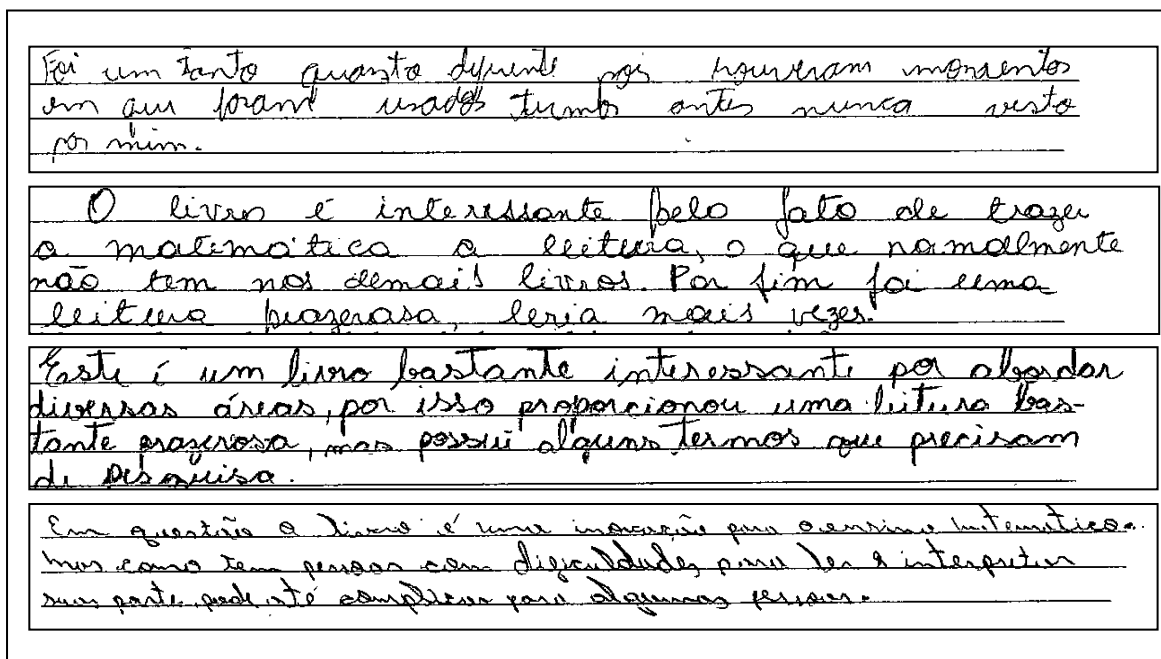 Foi um tanto quanto diferente pois houveram momentos
em que foram usados termos antes nunca visto
por mim.
O livro é interessante pelo fato de trazer
a matemática a leitura, o que normalmente
não tem nos demais livros. Por fim foi uma
leitura prazerosa, leria mais vezes.
Este é um livro bastante interessante por abordar
diversas áreas, por isso proporcionou uma leitura bas-
tante prazerosa, mas possui alguns termos que precisam
de pesquisa.
Em questão o livro é uma inovação para o ensino matematico.
mas como tem pessoas com dificuldades para ler e interpretar
parte, pode até complicar para algumas pessoas.